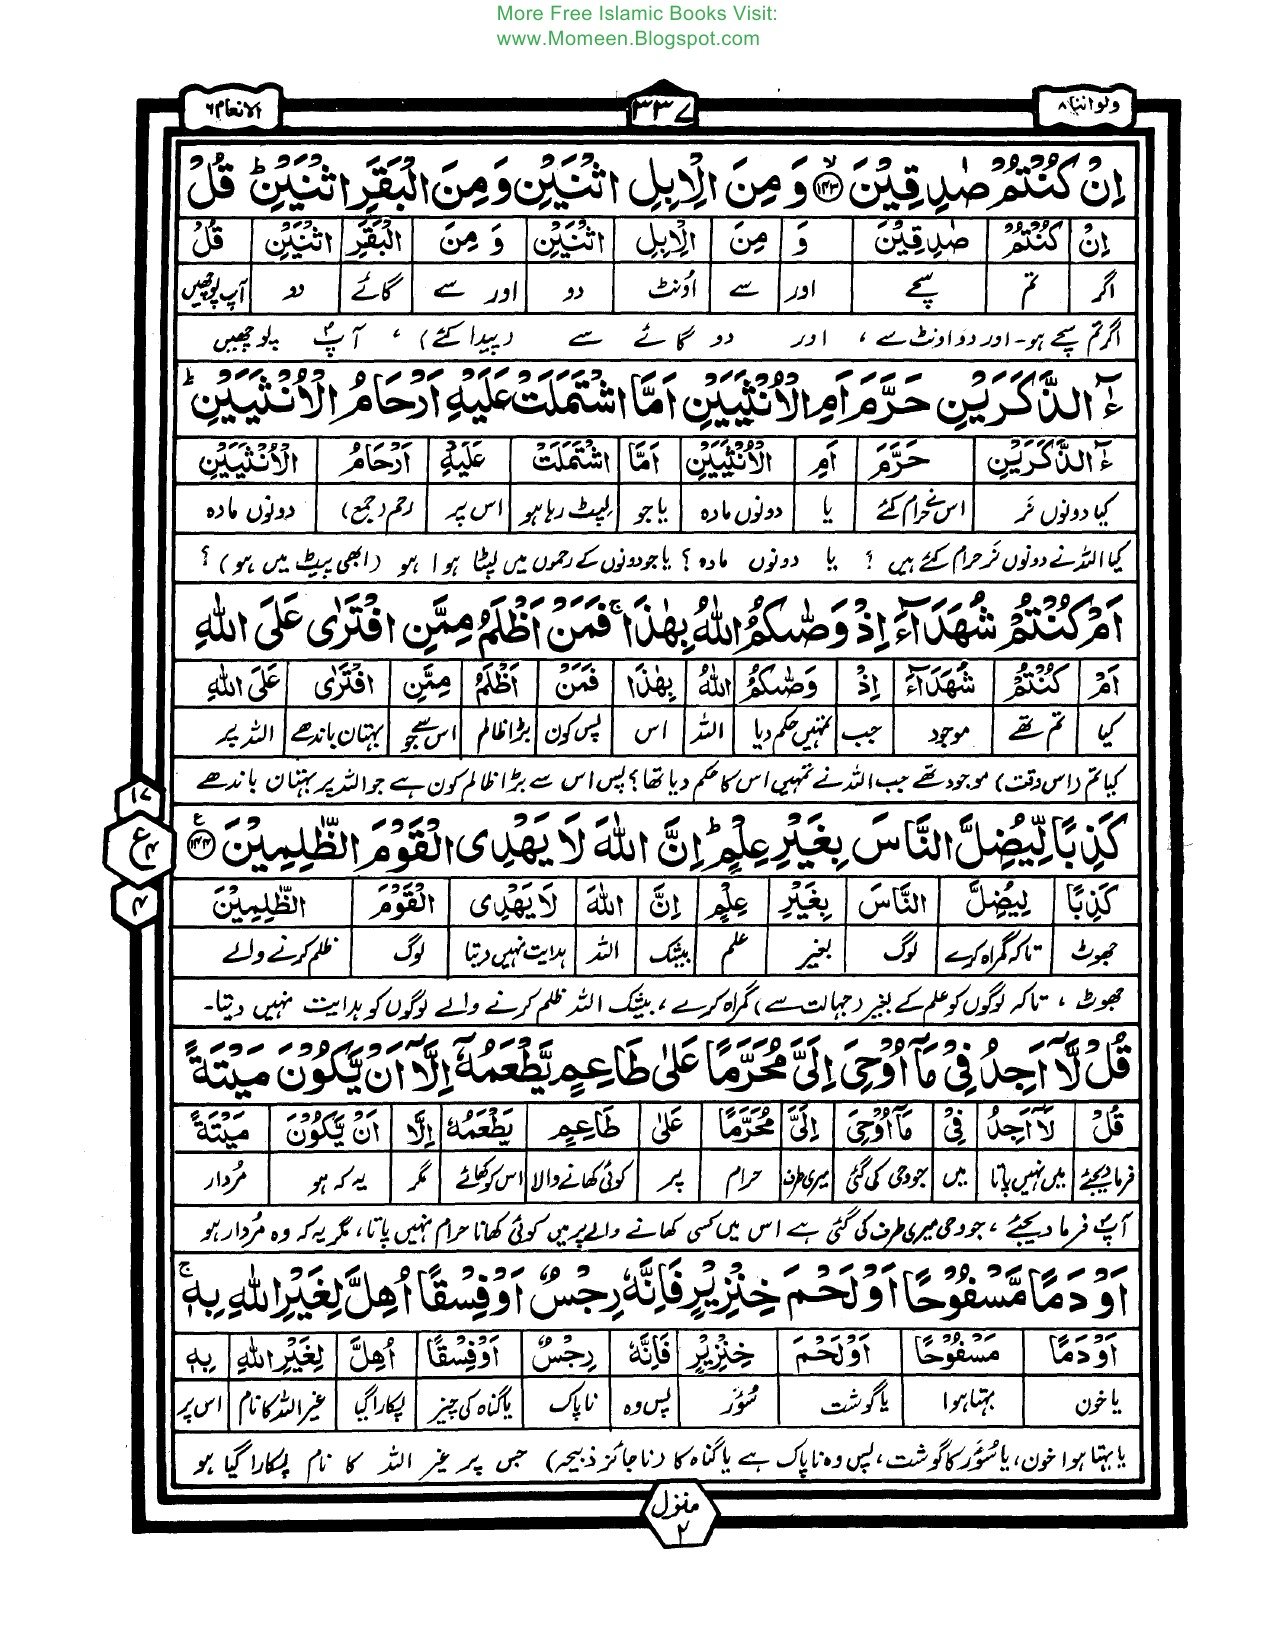 More Free Islamic Books Visit:
www.Momeen.Blogspot.com
ولواننا ۸
۳۳۷
الانعام ۶
اِنْ كُنْتُمْ صٰدِقِيْنَ ﴿۱۴۳﴾ وَ مِنَ الْاِبِلِ اثْنَيْنِ وَمِنَ الْبَقَرِ اثْنَيْنِ ؕ قُلْ
اِنْ كُنْتُمْ صٰدِقِيْنَ وَ مِنَ الْاِبِلِ اثْنَيْنِ وَ مِنَ الْبَقَرِ اثْنَيْنِ قُلْ
اگر تم سچے اور سے اُونٹ دو اور سے گائے دو آپ پوچھیں
اگر تم سچے ہو۔ اور دو اونٹ سے ، اور دو گائے سے (پیدا کئے) ، آپ پوچھیں
ءٰٓالذَّكَرَيْنِ حَرَّمَ اَمِ الْاُنْثَيَيْنِ اَمَّا اشْتَمَلَتْ عَلَيْهِ اَرْحَامُ الْاُنْثَيَيْنِ ؕ
ءٰٓالذَّكَرَيْنِ حَرَّمَ اَمِ الْاُنْثَيَيْنِ اَمَّا اشْتَمَلَتْ عَلَيْهِ اَرْحَامُ الْاُنْثَيَيْنِ
کیا دونوں نَر اس نے حرام کئے یا دونوں مادہ یا جو لپٹ رہا ہو اس پر رحم (جمع) دونوں مادہ
کیا اللہ نے دونوں نَر حرام کئے ہیں ؟ یا دونوں مادہ ؟ یا جو دونوں کے رحموں میں لپٹا ہوا ہو (ابھی پیٹ میں ہو) ؟
اَمْ كُنْتُمْ شُهَدَآءَ اِذْ وَصّٰىكُمُ اللّٰهُ بِهٰذَا ۚ فَمَنْ اَظْلَمُ مِمَّنِ افْتَرٰى عَلَى اللّٰهِ
اَمْ كُنْتُمْ شُهَدَآءَ اِذْ وَصّٰىكُمُ اللّٰهُ بِهٰذَا فَمَنْ اَظْلَمُ مِمَّنِ افْتَرٰى عَلَى اللّٰهِ
کیا تم تھے موجود جب تمہیں حکم دیا اللہ اس پس کون بڑا ظالم اس سے جو بہتان باندھے اللہ پر
کیا تم (اس وقت) موجود تھے جب اللہ نے تمہیں اس کا حکم دیا تھا ؟ پس اس سے بڑا ظالم کون ہے جو اللہ پر بہتان باندھے
كَذِبًا لِّيُضِلَّ النَّاسَ بِغَيْرِ عِلْمٍ ؕ اِنَّ اللّٰهَ لَا يَهْدِى الْقَوْمَ الظّٰلِمِيْنَ ﴿۱۴۴﴾ ع
۱۷
ع ۴
۴
كَذِبًا لِيُضِلَّ النَّاسَ بِغَيْرِ عِلْمٍ اِنَّ اللّٰهَ لَا يَهْدِى الْقَوْمَ الظّٰلِمِيْنَ
جھوٹ تاکہ گمراہ کرے لوگ بغیر علم بیشک اللہ ہدایت نہیں دیتا لوگ ظلم کرنے والے
جھوٹ ، تاکہ لوگوں کو علم کے بغیر (جہالت سے) گمراہ کرے ، بیشک اللہ ظلم کرنے والے لوگوں کو ہدایت نہیں دیتا۔
قُلْ لَّاۤ اَجِدُ فِىْ مَاۤ اُوْحِىَ اِلَىَّ مُحَرَّمًا عَلٰى طَاعِمٍ يَّطْعَمُهٗۤ اِلَّاۤ اَنْ يَّكُوْنَ مَيْتَةً
قُلْ لَاۤ اَجِدُ فِىْ مَاۤ اُوْحِىَ اِلَىَّ مُحَرَّمًا عَلٰى طَاعِمٍ يَطْعَمُهٗۤ اِلَّاۤ اَنْ يَّكُوْنَ مَيْتَةً
فرما دیجئے میں نہیں پاتا میں جو وحی کی گئی میری طرف حرام پر کوئی کھانے والا اس کو کھائے مگر یہ کہ ہو مُردار
آپ فرما دیجئے ، جو وحی میری طرف کی گئی ہے اس میں کسی کھانے والے پر میں کوئی کھانا حرام نہیں پاتا ، مگر یہ کہ وہ مُردار ہو
اَوْ دَمًا مَّسْفُوْحًا اَوْ لَحْمَ خِنْزِيْرٍ فَاِنَّهٗ رِجْسٌ اَوْ فِسْقًا اُهِلَّ لِغَيْرِ اللّٰهِ بِهٖ ۚ
اَوْ دَمًا مَسْفُوْحًا اَوْ لَحْمَ خِنْزِيْرٍ فَاِنَّهٗ رِجْسٌ اَوْ فِسْقًا اُهِلَّ لِغَيْرِ اللّٰهِ بِهٖ
یا خون بہتا ہوا یا گوشت سُوَر پس وہ ناپاک یا گناہ کی چیز پکارا گیا غیر اللہ کا نام اس پر
یا بہتا ہوا خون ، یا سُوَر کا گوشت ، پس وہ ناپاک ہے یا گناہ کا (ناجائز ذبیحہ) جس پر غیر اللہ کا نام پکارا گیا ہو
منزل ۲